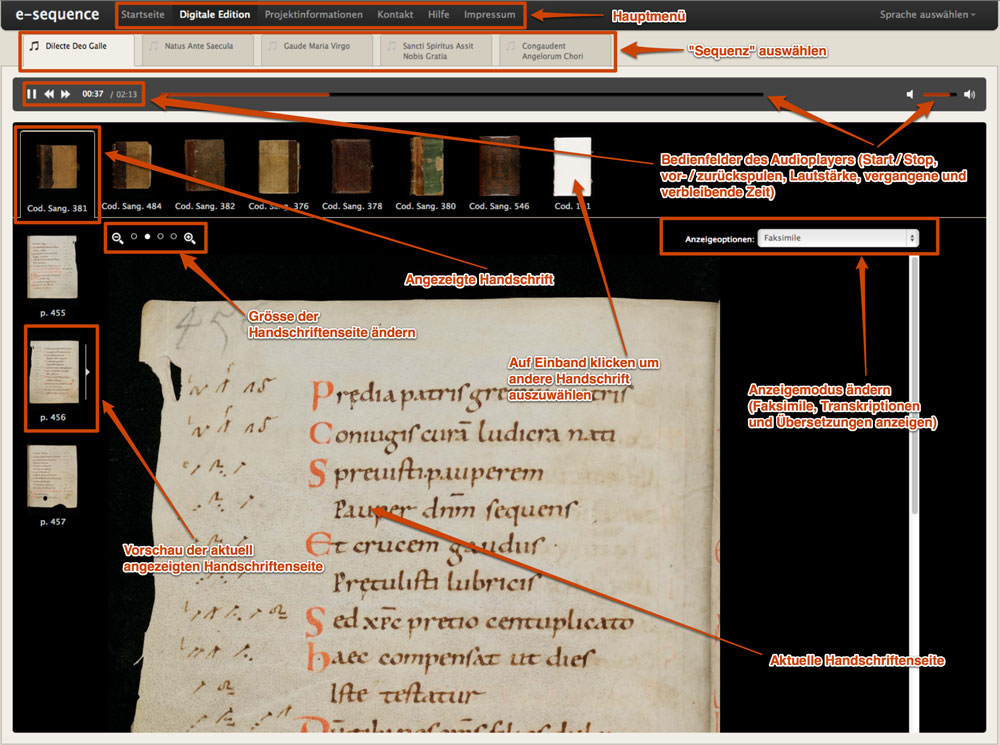 e-sequence
Startseite Digitale Edition Projektinformationen Kontakt Hilfe Impressum
Hauptmenü
Sprache auswählen
Dilecte Deo Galle
Natus Ante Saecula
Gaude Maria Virgo
Sancti Spiritus Assit
Nobis Gratia
Congaudent
Angelorum Chori
"Sequenz" auswählen
00:37 / 02:13
Bedienfelder des Audioplayers (Start / Stop,
vor- / zurückspulen, Lautstärke, vergangene und
verbleibende Zeit)
Cod. Sang. 381
Cod. Sang. 484
Cod. Sang. 382
Cod. Sang. 376
Cod. Sang. 378
Cod. Sang. 380
Cod. Sang. 546
Cod.
Anzeigeoptionen: Faksimile
Angezeigte Handschrift
Grösse der
Handschriftenseite ändern
Auf Einband klicken um
andere Handschrift
auszuwählen
Anzeigemodus ändern
(Faksimile, Transkriptionen
und Übersetzungen anzeigen)
p. 455
p. 456
p. 457
Vorschau der aktuell
angezeigten Handschriftenseite
Aktuelle Handschriftenseite
Prędia patris
Coniugis curā ludicra nati
Spreuisti pauperem
Pauper dn̄m sequens
Et crucem gaudus
Pretulisti lubricis
Sed xp̄c precio centuplicato
haec compensat ut dies
Iste testatur